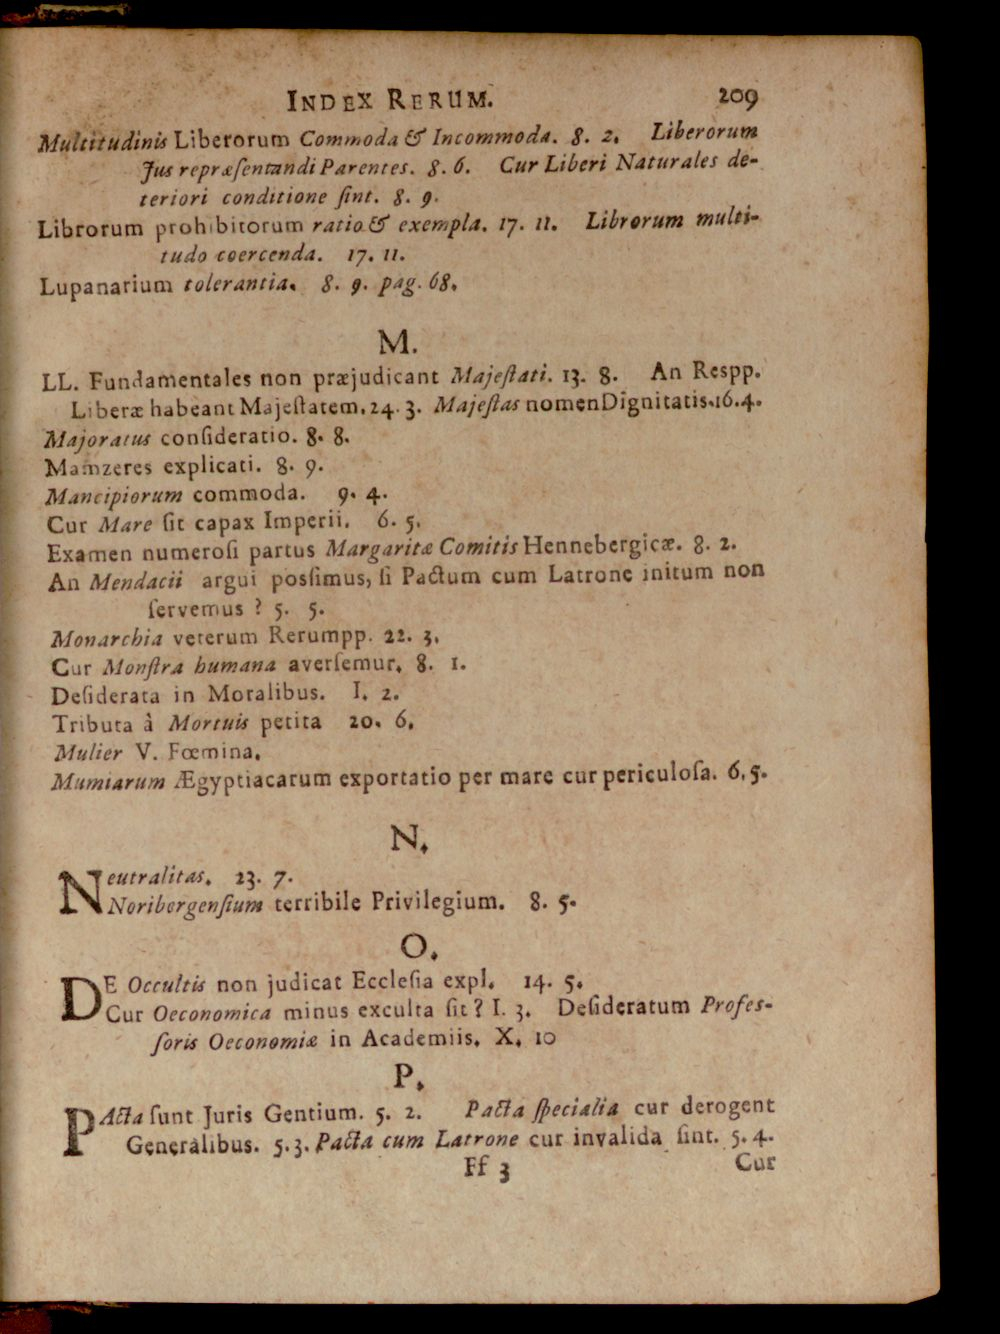 INDEX RERUM. 209
Multitudinis Liberorum Commoda & Incommoda. 8. 2. Liberorum
Jus repræſentandi Parentes. 8. 6. Cur Liberi Naturales de-
teriori conditione ſint. 8. 9.
Librorum prohibitorum ratio & exempla. 17. 11. Librorum multi-
tudo coercenda. 17. 11.
Lupanarium tolerantia. 8. 9. pag. 68.
M.
LL. Fundamentales non præjudicant Majeſtati. 13. 8. An Respp.
Liberæ habeant Majeſtatem. 24. 3. Majeſtas nomen Dignitatis. 16. 4.
Majoratus conſideratio. 8. 8.
Mamzeres explicati. 8. 9.
Mancipiorum commoda. 9. 4.
Cur Mare ſit capax Imperii. 6. 5.
Examen numeroſi partus Margaritæ Comitis Hennebergicæ. 8. 2.
An Mendacii argui possimus, ſi Pactum cum Latrone initum non
ſervemus? 5. 5.
Monarchia veterum Rerumpp. 22. 3.
Cur Monſtra humana averſemur. 8. 1.
Deſiderata in Moralibus. I. 2.
Tributa à Mortuis petita 20. 6.
Mulier V. Fœmina.
Mumiarum Ægyptiacarum exportatio per mare cur periculoſa. 6. 5.
N.
Neutralitas. 23. 7.
Noribergenſium terribile Privilegium. 8. 5.
O.
DE Occultis non judicat Eccleſia expl. 14. 5.
Cur Oeconomica minus exculta ſit? I. 3. Deſideratum Profes-
ſoris Oeconomiæ in Academiis. X. 10
P.
PActa ſunt Juris Gentium. 5. 2. Pacta ſpecialia cur derogent
Generalibus. 5. 3. Pacta cum Latrone cur invalida ſint. 5. 4.
Ff 3 Cur